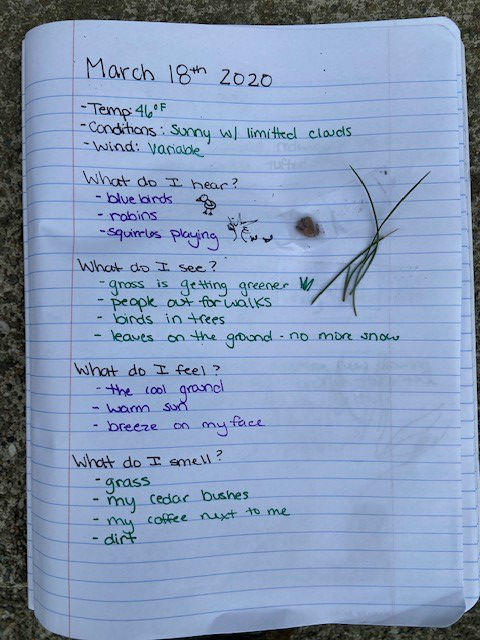 March 18th 2020
- Temp: 46°F
- Conditions: Sunny w/ limitted clouds
- Wind: Variable
What do I hear?
- bluebirds
- robins
- squirrles playing
What do I see?
- grass is getting greener
- people out for walks
- birds in trees
- leaves on the ground - no more snow
What do I feel?
- the cool ground
- warm sun
- breeze on my face
What do I smell?
- grass
- my cedar bushes
- my coffee next to me
- dirt